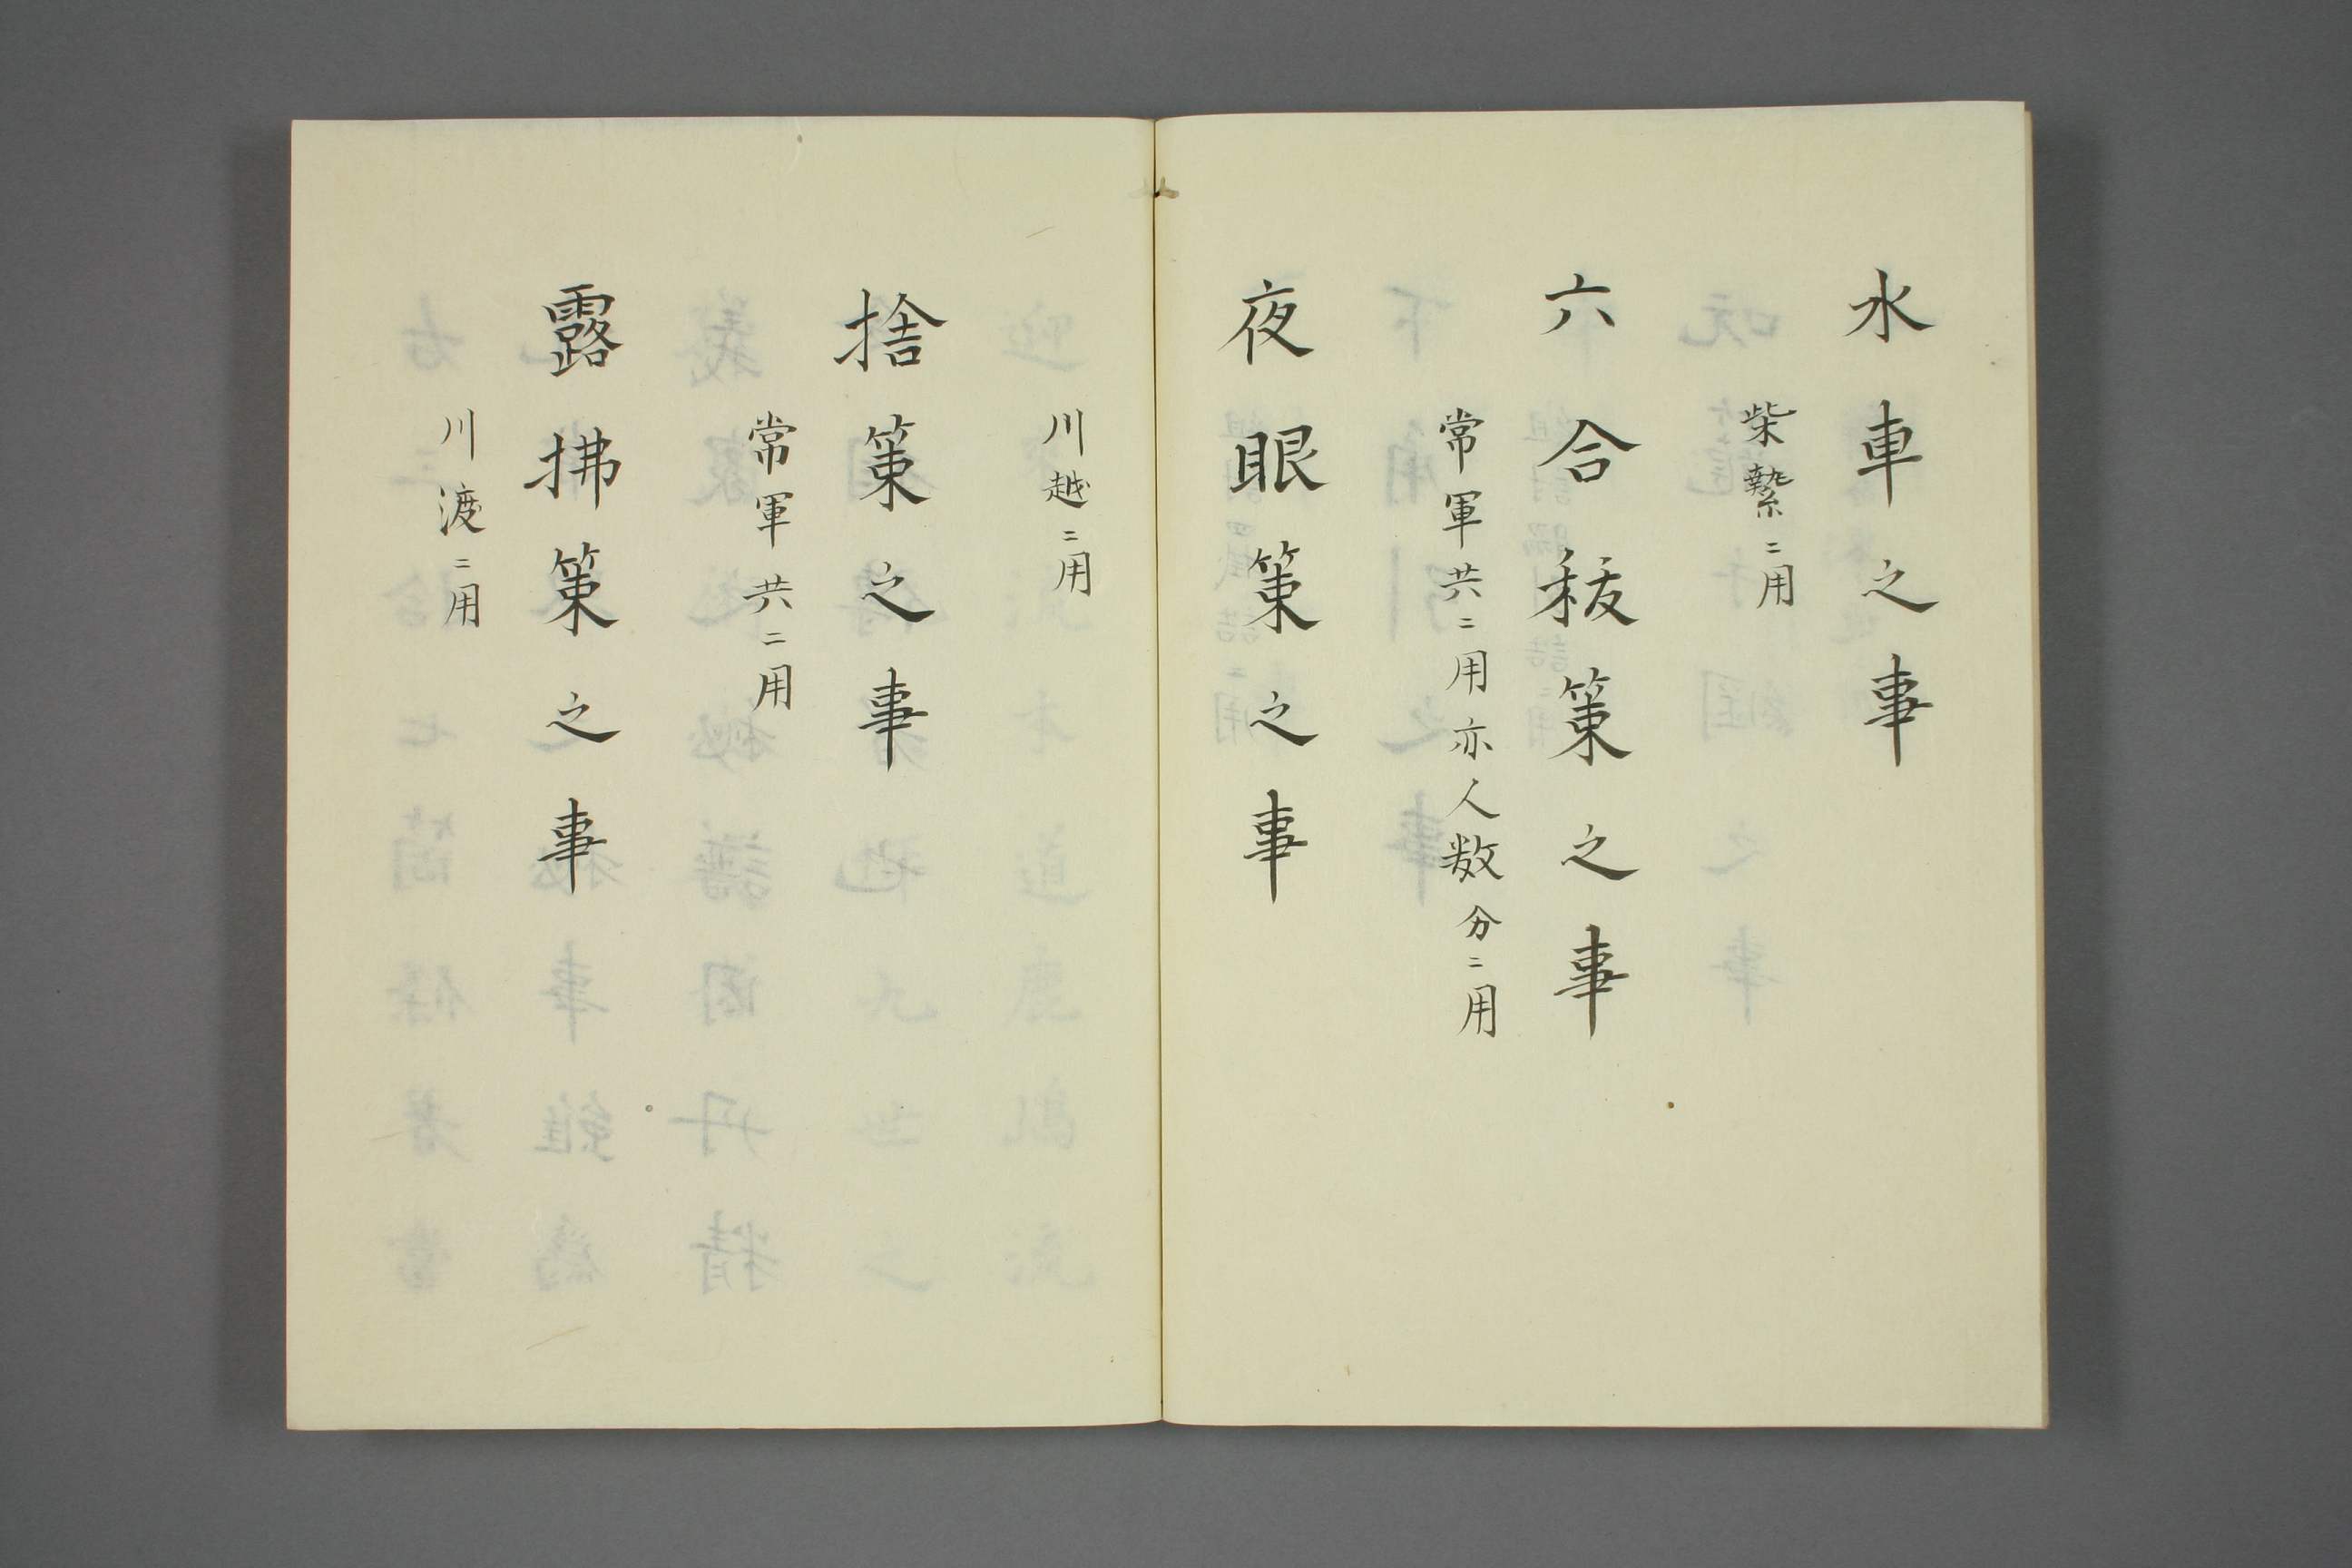 水車之事
柴繋ニ用
六合秡策之事
常軍共ニ用亦人数分ニ用
夜眼策之事
川越ニ用
捨策之事
常軍共ニ用
露拂策之事
川渡ニ用